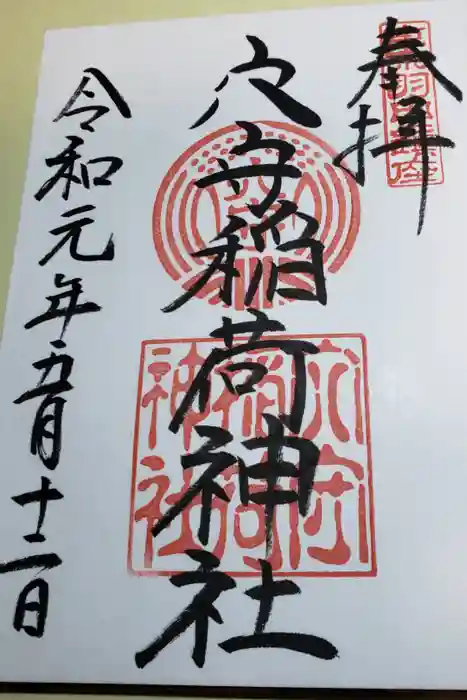 奉拝
穴守稲荷神社
令和元年五月十二日
穴守
稲荷
神社